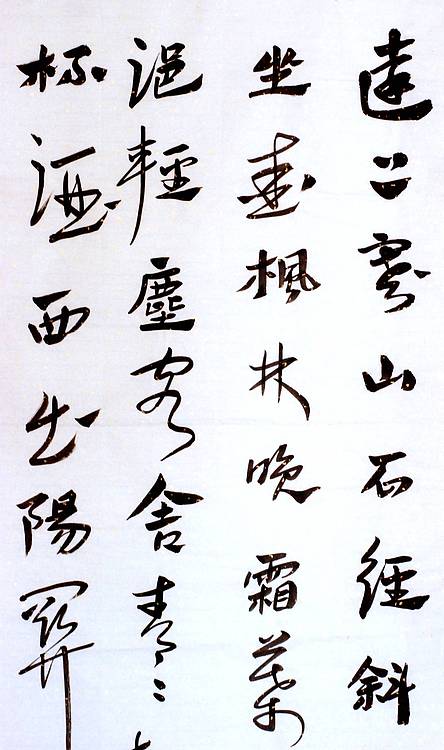 遠上寒山石徑斜
坐愛楓林晚霜葉
浥輕塵客舍青々
杯酒西出陽關